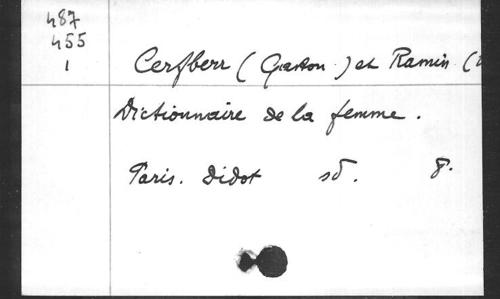 487
455
1
Cerfberr (Gaston) et Ramin (
Dictionnaire de la femme.
Paris. Didot sd. 8.